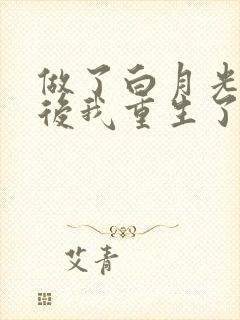 做了白月光
後我重生了
艾青